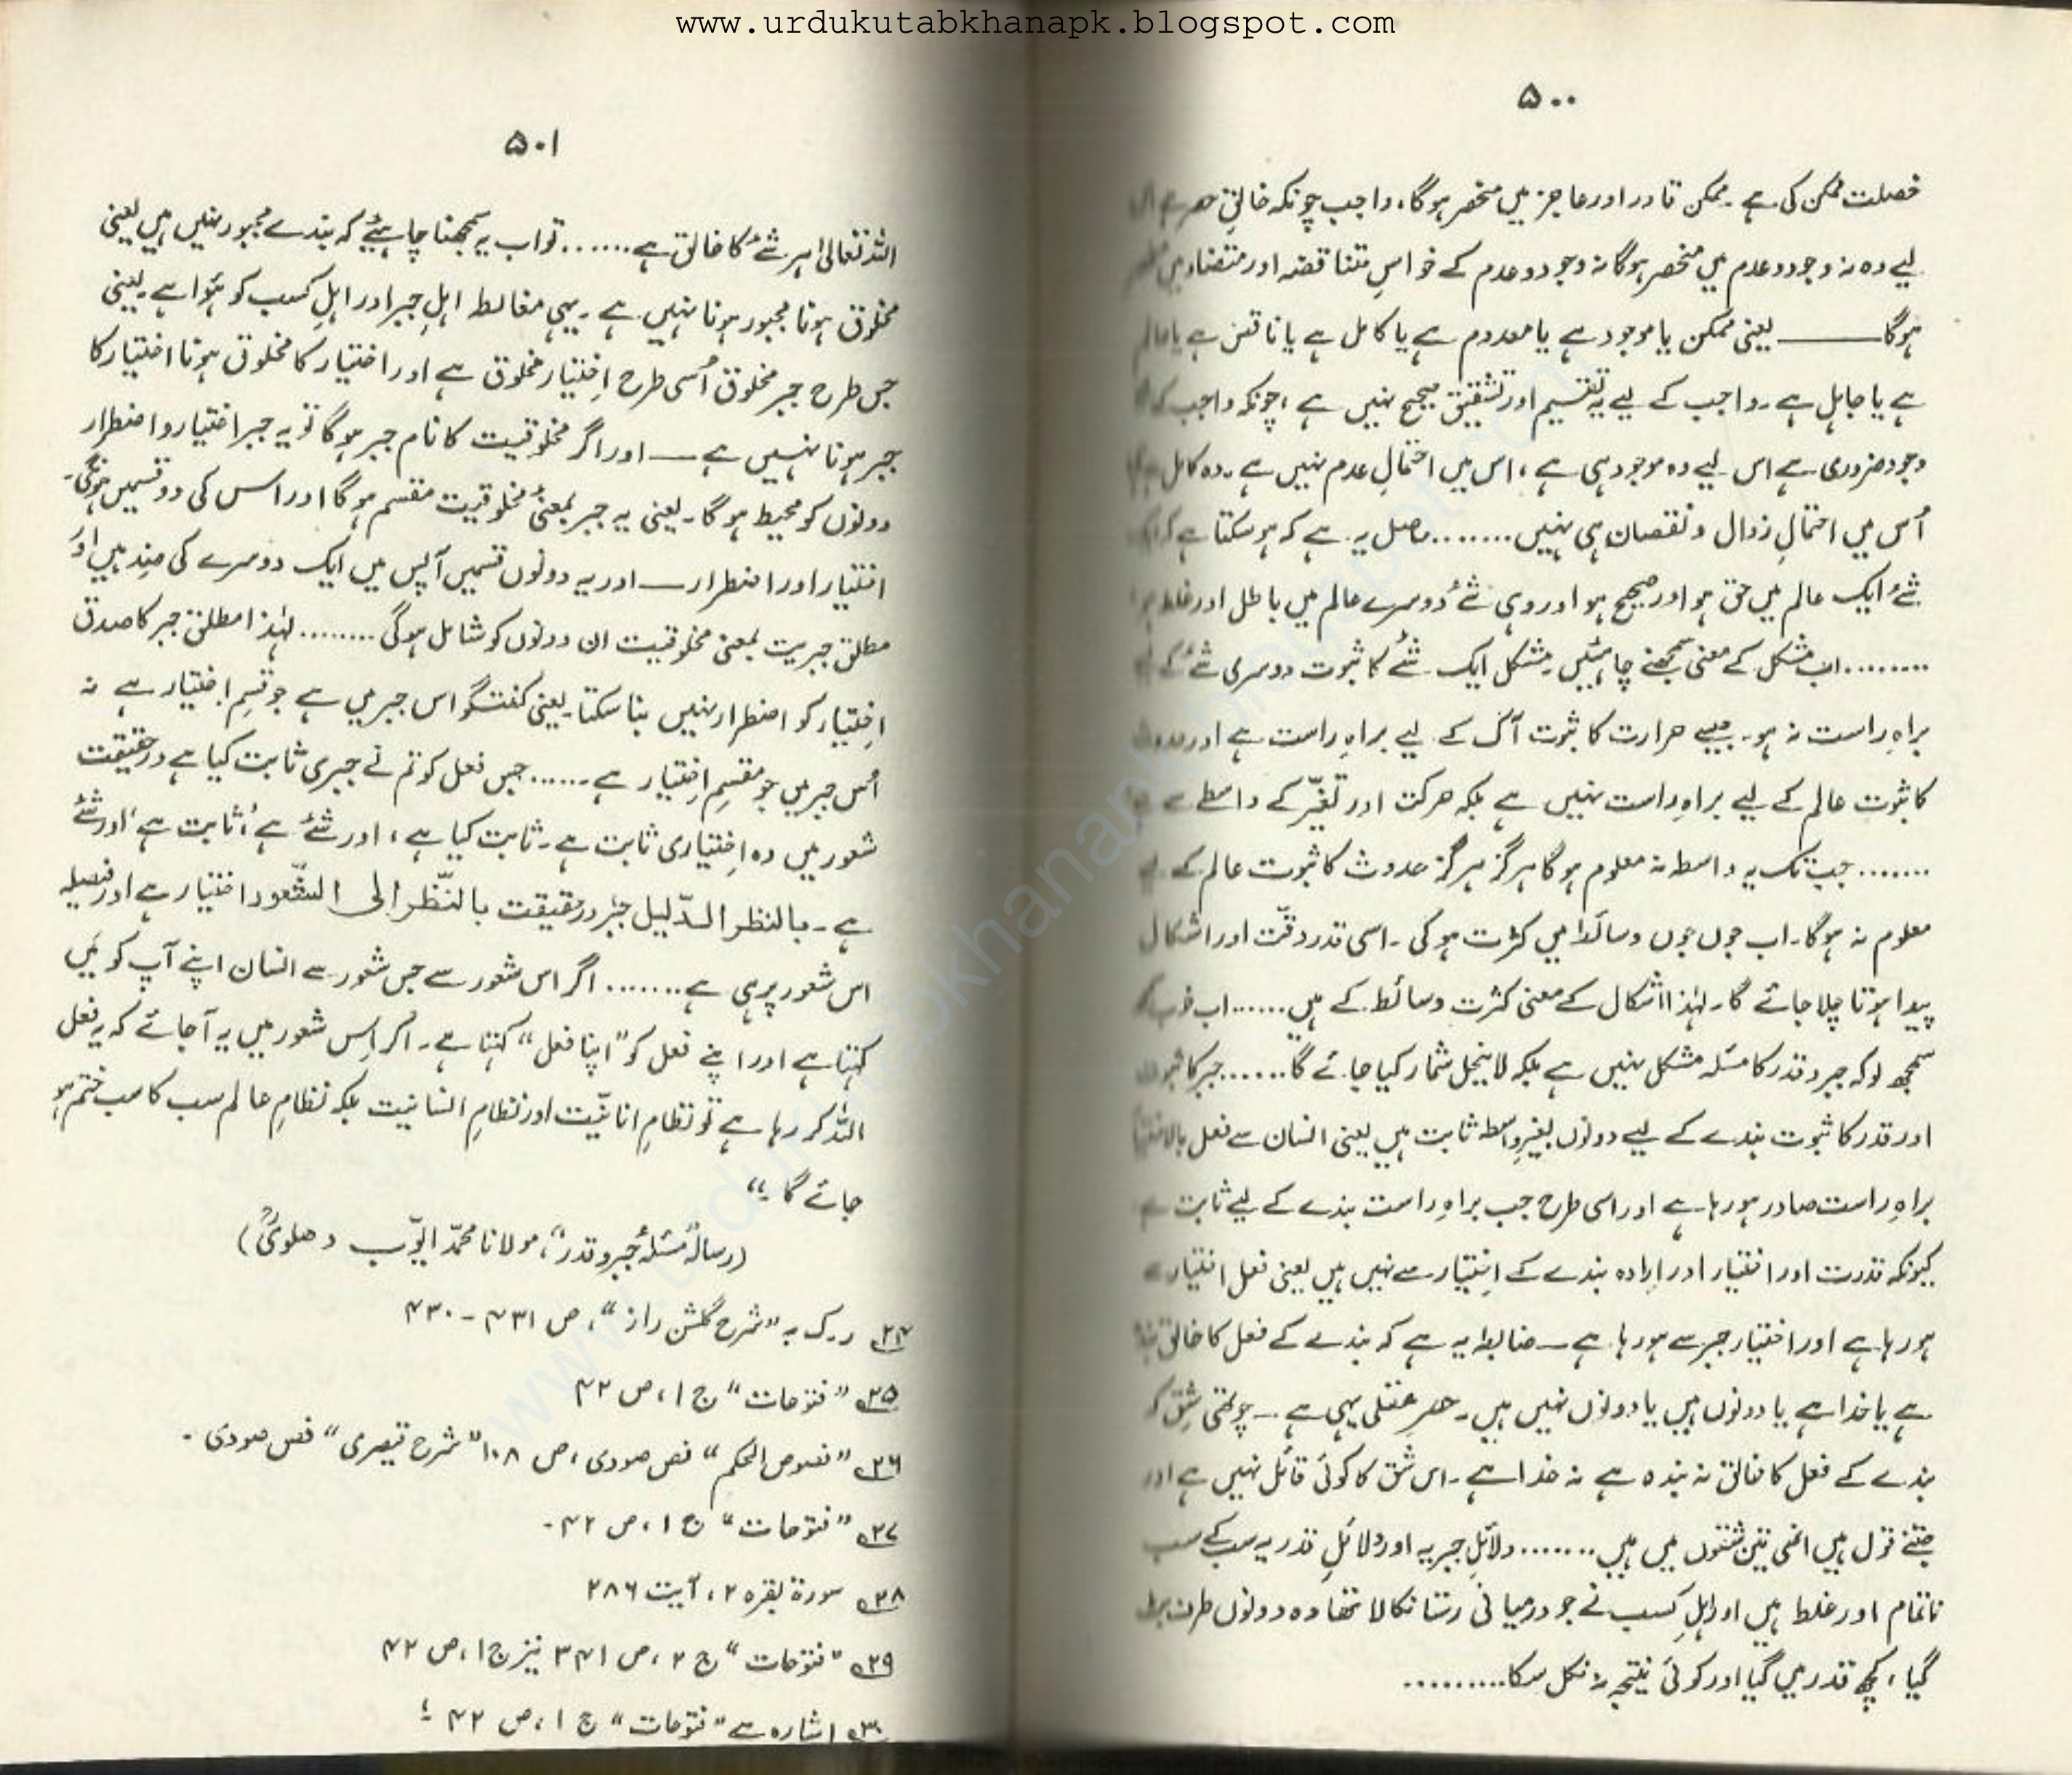 www.urdukutabkhanapk.blogspot.com
۵۰۰
خصلت ممکن کی ہے۔ ممکن قادر اور عاجز میں منحصر ہوگا، واجب چونکہ خالقِ حصر ہے اس
لیے وہ نہ وجود و عدم میں منحصر ہوگا نہ وجود و عدم کے خواصِ متناقضہ اور متضاد میں
ہوگا ——— یعنی ممکن یا موجود ہے یا معدوم ہے یا کامل ہے یا ناقص ہے یا عالم
ہے یا جاہل ہے۔ واجب کے لیے یہ تقسیم اور تشقیق صحیح نہیں ہے، چونکہ واجب کا
وجود ضروری ہے اس لیے وہ موجود ہی ہے، اس میں احتمالِ عدم نہیں ہے۔ وہ کامل ہے
اُس میں احتمالِ زوال و نقصان ہی نہیں ....... حاصل یہ ہے کہ ہو سکتا ہے کہ ایک
شئے ایک عالم میں حق ہو اور صحیح ہو اور وہی شئے دوسرے عالم میں باطل اور غلط ہو
........ اب مشکل کے معنی سمجھنے چاہئیں۔ مشکل ایک شئے کا ثبوت دوسری شئے کے لیے
براہِ راست نہ ہو۔ جیسے حرارت کا ثبوت آگ کے لیے براہِ راست ہے اور حدوث
کا ثبوت عالم کے لیے براہِ راست نہیں ہے بلکہ حرکت اور تغیّر کے واسطے سے ہے
....... جب تک یہ واسطہ نہ معلوم ہوگا ہرگز ہرگز حدوث کا ثبوت عالم کے لیے
معلوم نہ ہوگا۔ اب جوں جوں وسائط میں کثرت ہوگی۔ اسی قدر دقّت اور اشکال
پیدا ہوتا چلا جائے گا۔ لہٰذا اشکال کے معنی کثرت وسائط کے ہیں ...... اب خوب
سمجھ لو کہ جبر و قدر کا مسئلہ مشکل نہیں ہے بلکہ لاینحل شمار کیا جائے گا ...... جبر کا ثبوت
اور قدر کا ثبوت بندے کے لیے دونوں بغیر واسطہ ثابت ہیں یعنی انسان سے فعل بالاختیار
براہِ راست صادر ہو رہا ہے اور اسی طرح جب براہِ راست بندے کے لیے ثابت ہے
کیونکہ قدرت اور اختیار اور ارادہ بندے کے اِختیار سے نہیں ہیں یعنی فعل اختیار سے
ہو رہا ہے اور اختیار جبر سے ہو رہا ہے — ضابطہ یہ ہے کہ بندے کے فعل کا خالق بندہ
ہے یا خدا ہے یا دونوں ہیں یا دونوں نہیں ہیں۔ حصرِ عقلی یہی ہے — چوتھی شِق کہ
بندے کے فعل کا خالق نہ بندہ ہے نہ خدا ہے۔ اس شق کا کوئی قائل نہیں ہے اور
جتنے قول ہیں انھی تین شقوں میں ہیں ....... دلائلِ جبریہ اور دلائلِ قدریہ سب کے سب
ناتمام اور غلط ہیں اور اہلِ کسب نے جو درمیانی رستا نکالا تھا وہ دونوں طرف
گیا، کچھ قدر میں گیا اور کوئی نتیجہ نہ نکل سکا .........
۵۰۱
اللہ تعالیٰ ہر شئے کا خالق ہے ...... تو اب یہ سمجھنا چاہیئے کہ بندے مجبور نہیں ہیں یعنی
مخلوق ہونا مجبور ہونا نہیں ہے۔ یہی مغالطہ اہلِ جبر اور اہلِ کسب کو ہُوا ہے۔ یعنی
جس طرح جبر مخلوق اُسی طرح اِختیار مخلوق ہے اور اختیار کا مخلوق ہونا اختیار کا
جبر ہونا نہیں ہے — اور اگر مخلوقیت کا نام جبر ہوگا تو یہ جبر اختیار و اضطرار
دونوں کو محیط ہوگا۔ یعنی یہ جبر بمعنیٔ مخلوقیت مقسم ہوگا اور اسس کی دو قسمیں ہونگی۔
اختیار اور اضطرار — اور یہ دونوں قسمیں آپس میں ایک دوسرے کی ضِد ہیں اور
مطلق جبریت بمعنی مخلوقیت ان دونوں کو شامل ہوگی ........ لہٰذا مطلق جبر کا صدق
اِختیار کو اضطرار نہیں بنا سکتا۔ یعنی گفتگو اس جبر میں ہے جو قسمِ اختیار ہے نہ
اُس جبر میں جو مقسمِ اِختیار ہے ...... جس فعل کو تم نے جبری ثابت کیا ہے درحقیقت
شعور میں وہ اِختیاری ثابت ہے۔ ثابت کیا ہے، اور شئے ہے، ثابت ہے، اور شئے
ہے۔ بالنظر الدّلیل جبر درحقیقت بالنّظر الی الشّعور اختیار ہے اور فیصلہ
اس شعور پر ہی ہے ....... اگر اس شعور سے جس شعور سے انسان اپنے آپ کو مَیں
کہتا ہے اور اپنے فعل کو "اپنا فعل" کہتا ہے۔ اگر اِس شعور میں یہ آجائے کہ یہ فعل
اللہ کر رہا ہے تو نظامِ انانیّت اور نظامِ انسانیت بلکہ نظامِ عالم سب کا سب ختم ہو
جائے گا۔"
(رسالۂ "مسئلۂ جبر و قدر"، مولانا محمّد ایّوب دھلویؒ)
۲۴ ر۔ک بہ "شرح گلشن راز"، ص ۴۳۱ - ۴۳۰
۲۵ "فتوحات" ج ۱، ص ۴۲
۲۶ "فصوص الحکم" فص ھودی، ص ۱۰۸ "شرح قیصری" فص ھودی۔
۲۷ "فتوحات" ج ۱، ص ۴۲۔
۲۸ سورۃ بقرہ ۲، آیت ۲۸۶
۲۹ "فتوحات" ج ۲، ص ۳۴۱ نیز ج ۱، ص ۴۲
۳۰ اشارہ سے "فتوحات" ج ۱، ص ۴۲